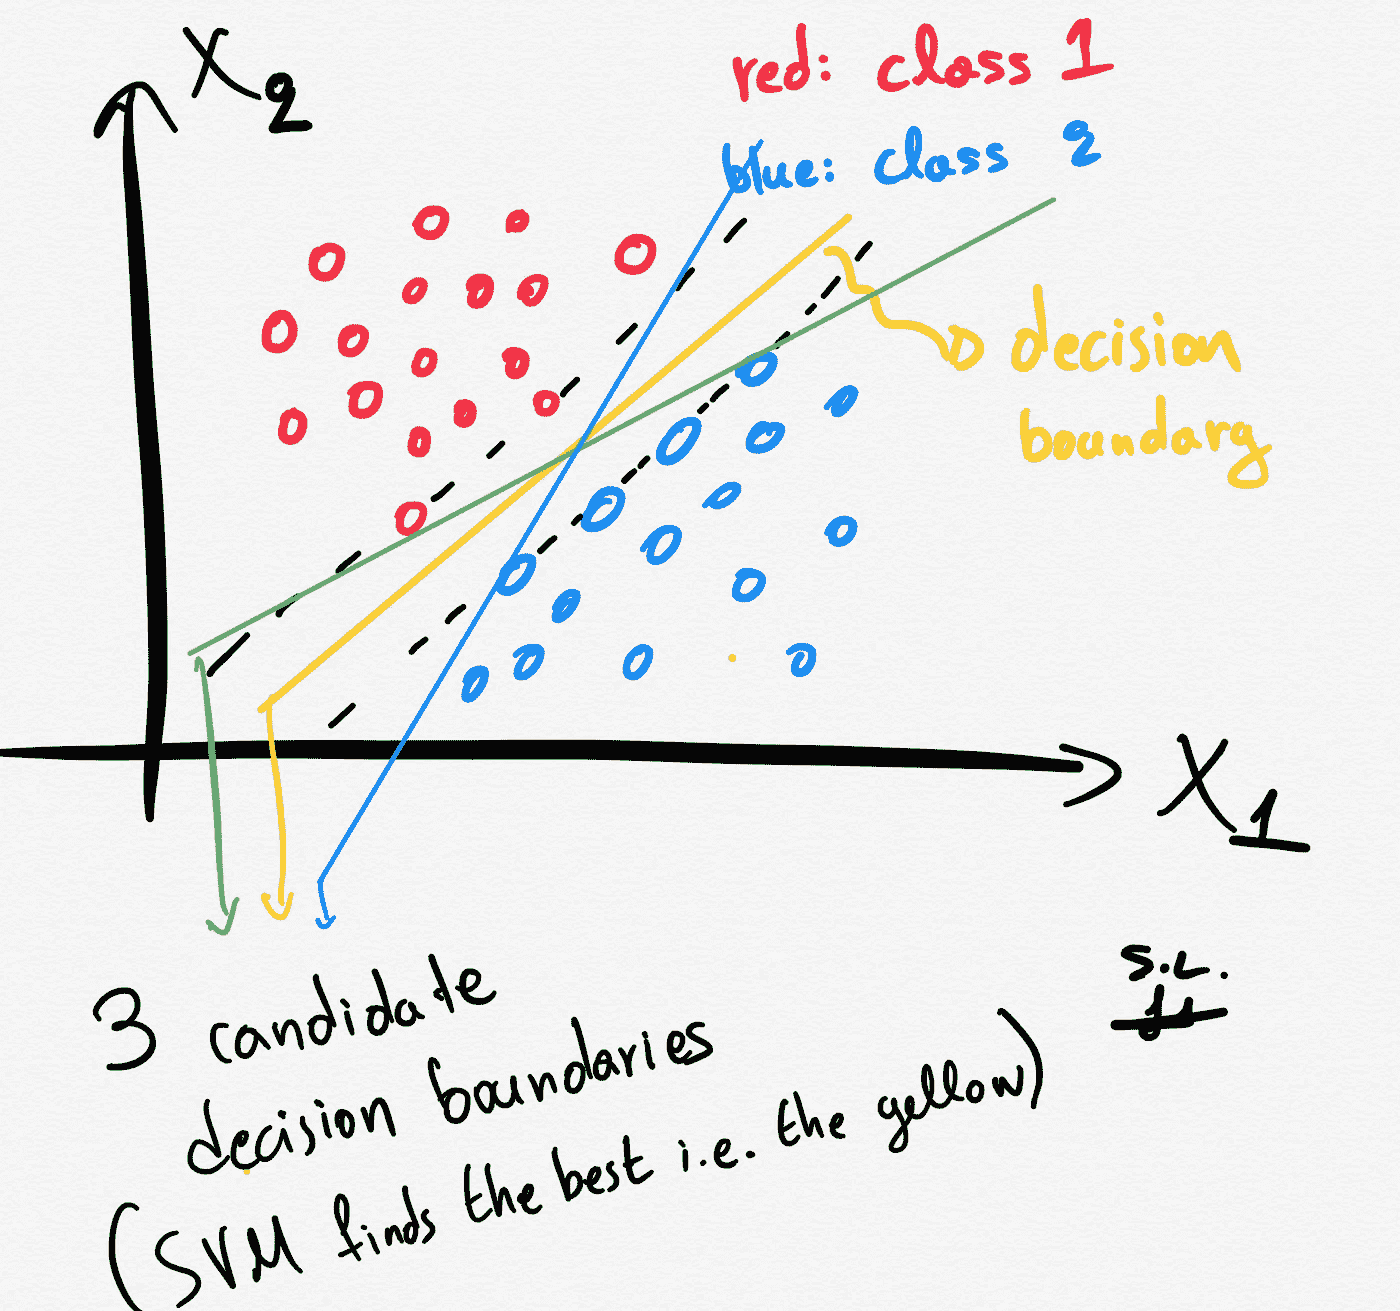 X2
red: class 1
blue: class 2
decision
boundary
X1
3 candidate
decision boundaries
(SVM finds the best i.e. the yellow)
S.L.